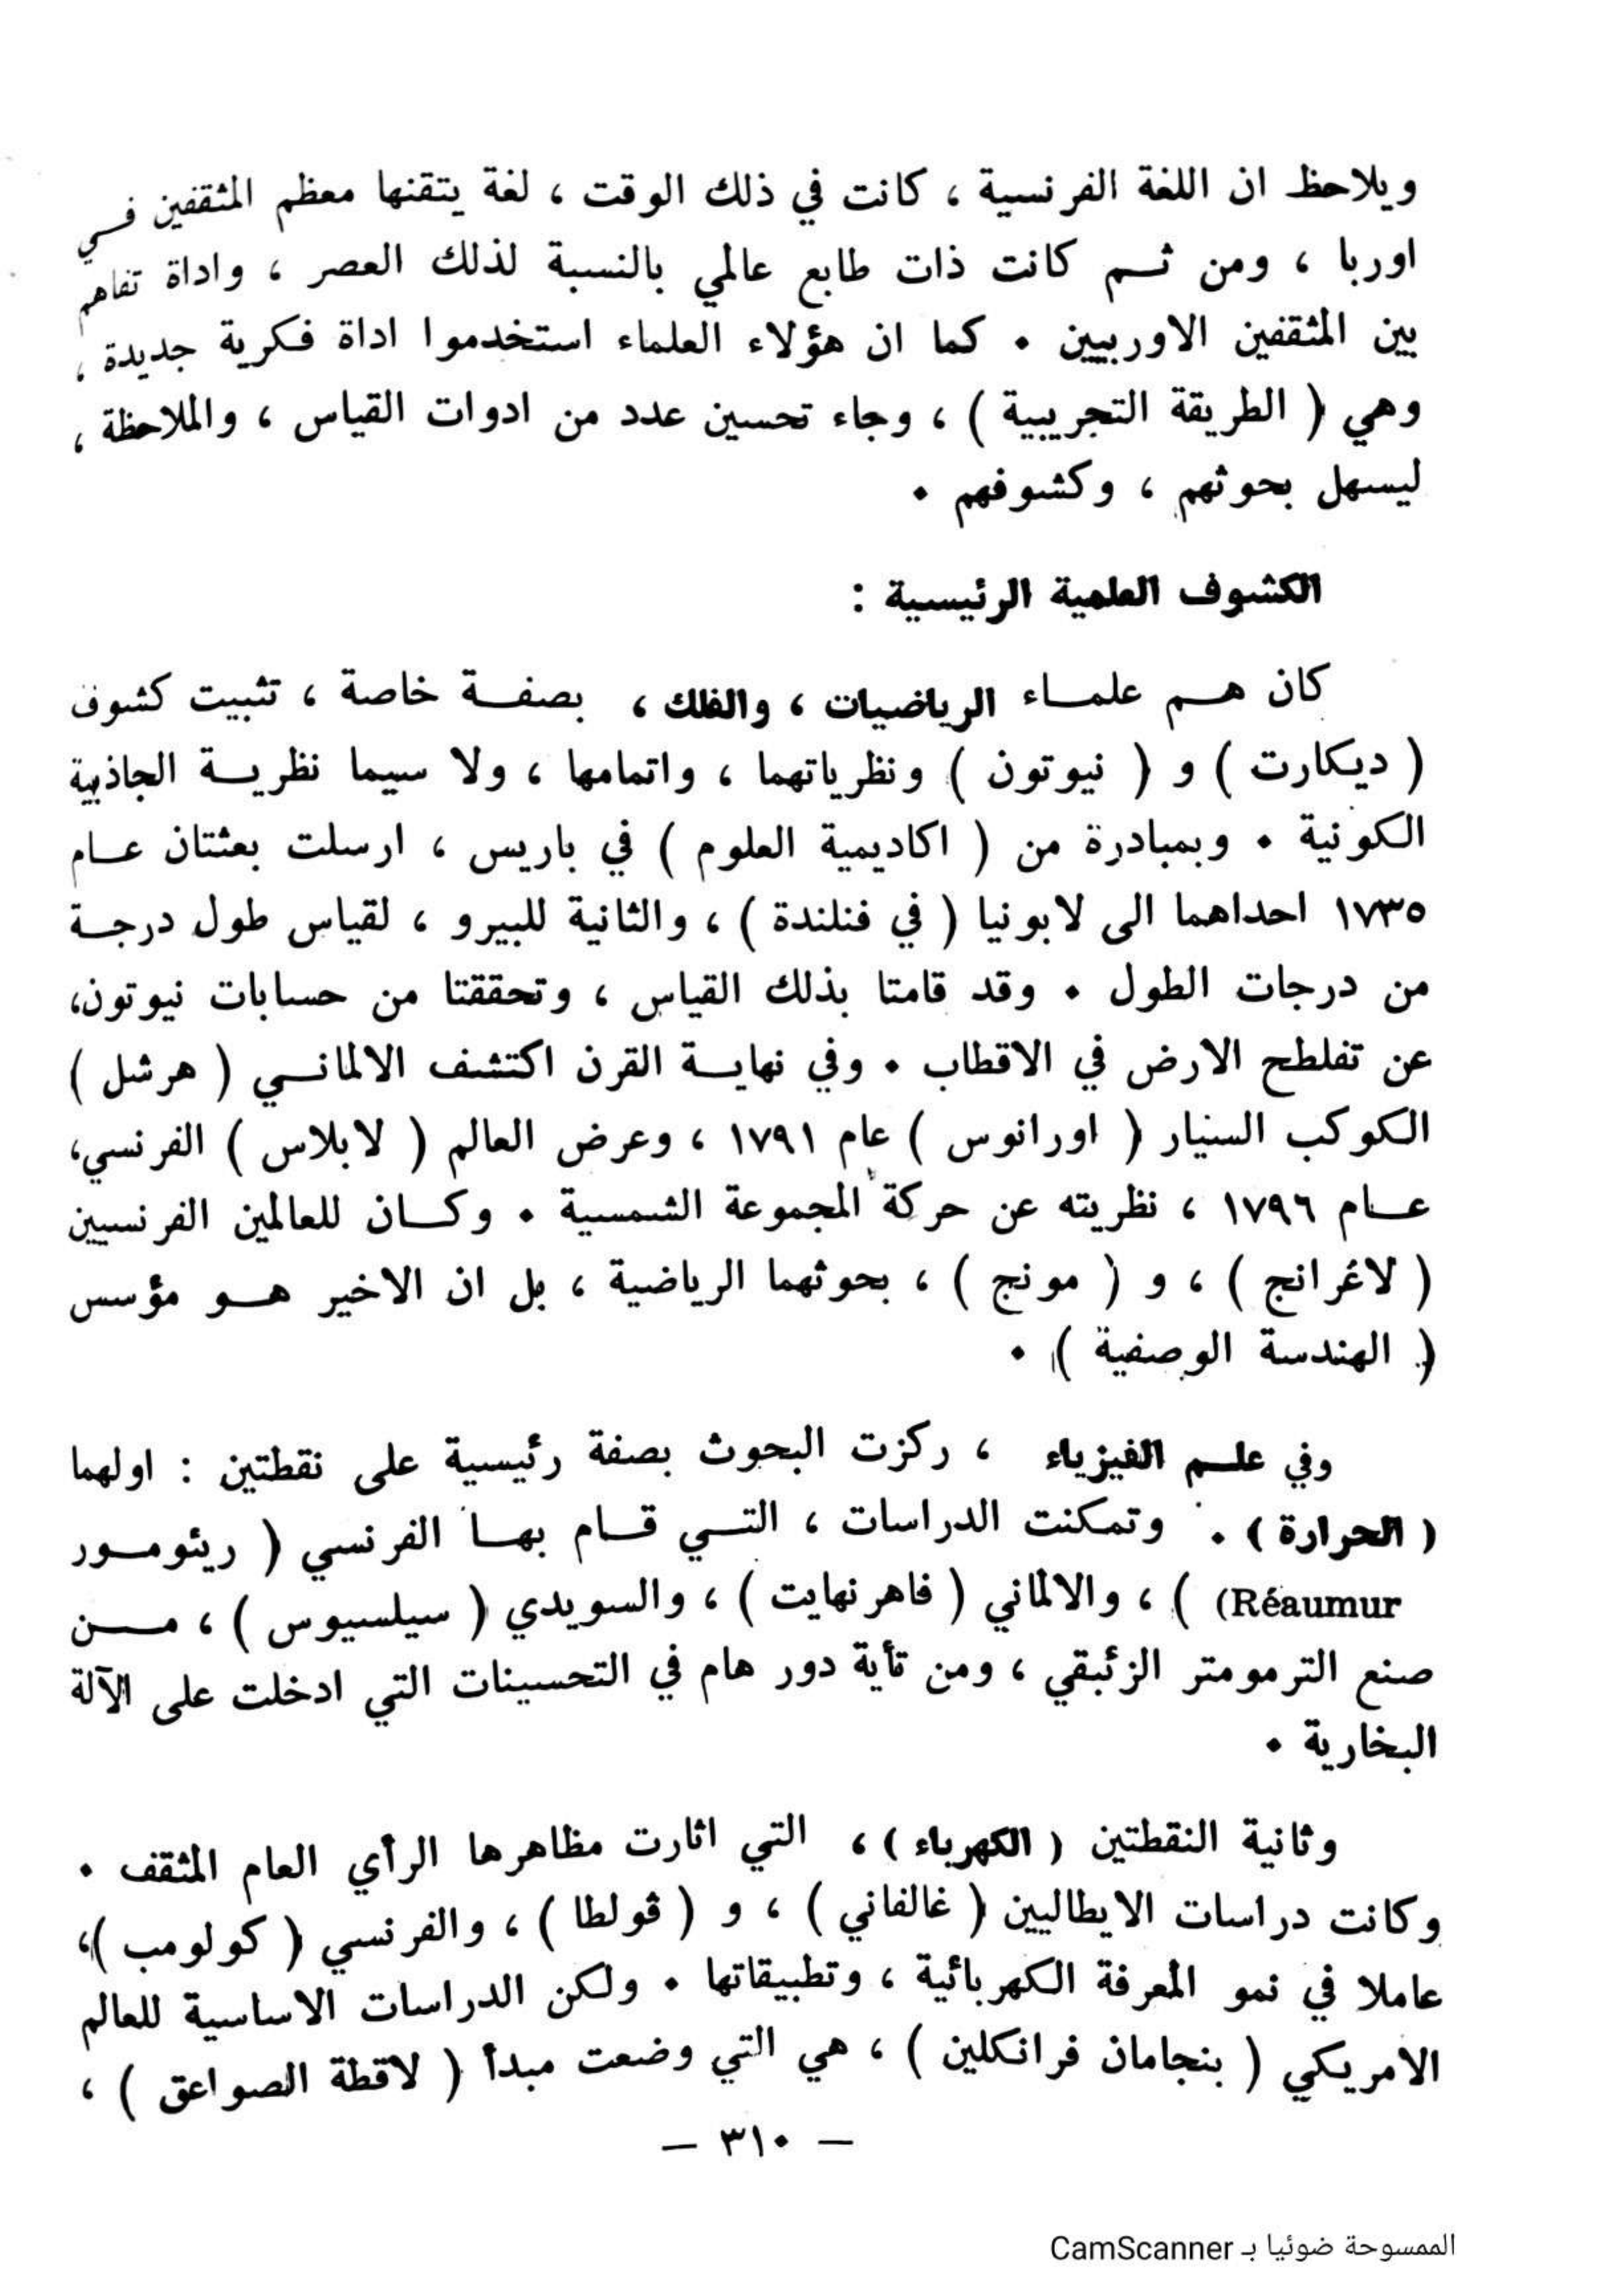 ويلاحظ ان اللغة الفرنسية ، كانت في ذلك الوقت ، لغة يتقنها معظم المثقفين فـــي
اوربا ، ومن ثـــم كانت ذات طابع عالمي بالنسبة لذلك العصر ، واداة تفاهم
بين المثقفين الاوربيين . كما ان هؤلاء العلماء استخدموا اداة فكرية جديدة ،
وهي ( الطريقة التجريبية ) ، وجاء تحسين عدد من ادوات القياس ، والملاحظة ،
ليسهل بحوثهم ، وكشوفهم .
الكشوف العلمية الرئيسية :
كان هـــم علمـــاء الرياضيات ، والفلك ، بصفـــة خاصة ، تثبيت كشوف
( ديكارت ) و ( نيوتون ) ونظرياتهما ، واتمامها ، ولا سيما نظريـــة الجاذبية
الكونية . وبمبادرة من ( اكاديمية العلوم ) في باريس ، ارسلت بعثتان عـــام
١٧٣٥ احداهما الى لابونيا ( في فنلندة ) ، والثانية للبيرو ، لقياس طول درجـــة
من درجات الطول . وقد قامتا بذلك القياس ، وتحققتا من حسابات نيوتون،
عن تفلطح الارض في الاقطاب . وفي نهايـــة القرن اكتشف الالمانـــي ( هرشل )
الكوكب السيار ( اورانوس ) عام ١٧٩١ ، وعرض العالم ( لابلاس ) الفرنسي،
عـــام ١٧٩٦ ، نظريته عن حركة المجموعة الشمسية . وكـــان للعالمين الفرنسيين
( لاغرانج ) ، و ( مونج ) ، بحوثهما الرياضية ، بل ان الاخير هـــو مؤسس
( الهندسة الوصفية ) .
وفي علـــم الفيزياء ، ركزت البحوث بصفة رئيسية على نقطتين : اولهما
( الحرارة ) . وتمكنت الدراسات ، التـــي قـــام بهـــا الفرنسي ( ريئومـــور
Réaumur) ) ، والالماني ( فاهرنهايت ) ، والسويدي ( سيلسيوس ) ، مـــن
صنع الترمومتر الزئبقي ، ومن تأية دور هام في التحسينات التي ادخلت على الآلة
البخارية .
وثانية النقطتين ( الكهرباء ) ، التي اثارت مظاهرها الرأي العام المثقف .
وكانت دراسات الايطاليين ( غالفاني ) ، و ( ڤولطا ) ، والفرنسي ( كولومب )،
عاملا في نمو المعرفة الكهربائية ، وتطبيقاتها . ولكن الدراسات الاساسية للعالم
الامريكي ( بنجامان فرانكلين ) ، هي التي وضعت مبدأ ( لاقطة الصواعق ) ،
— ٣١٠ —
الممسوحة ضوئيا بـ CamScanner